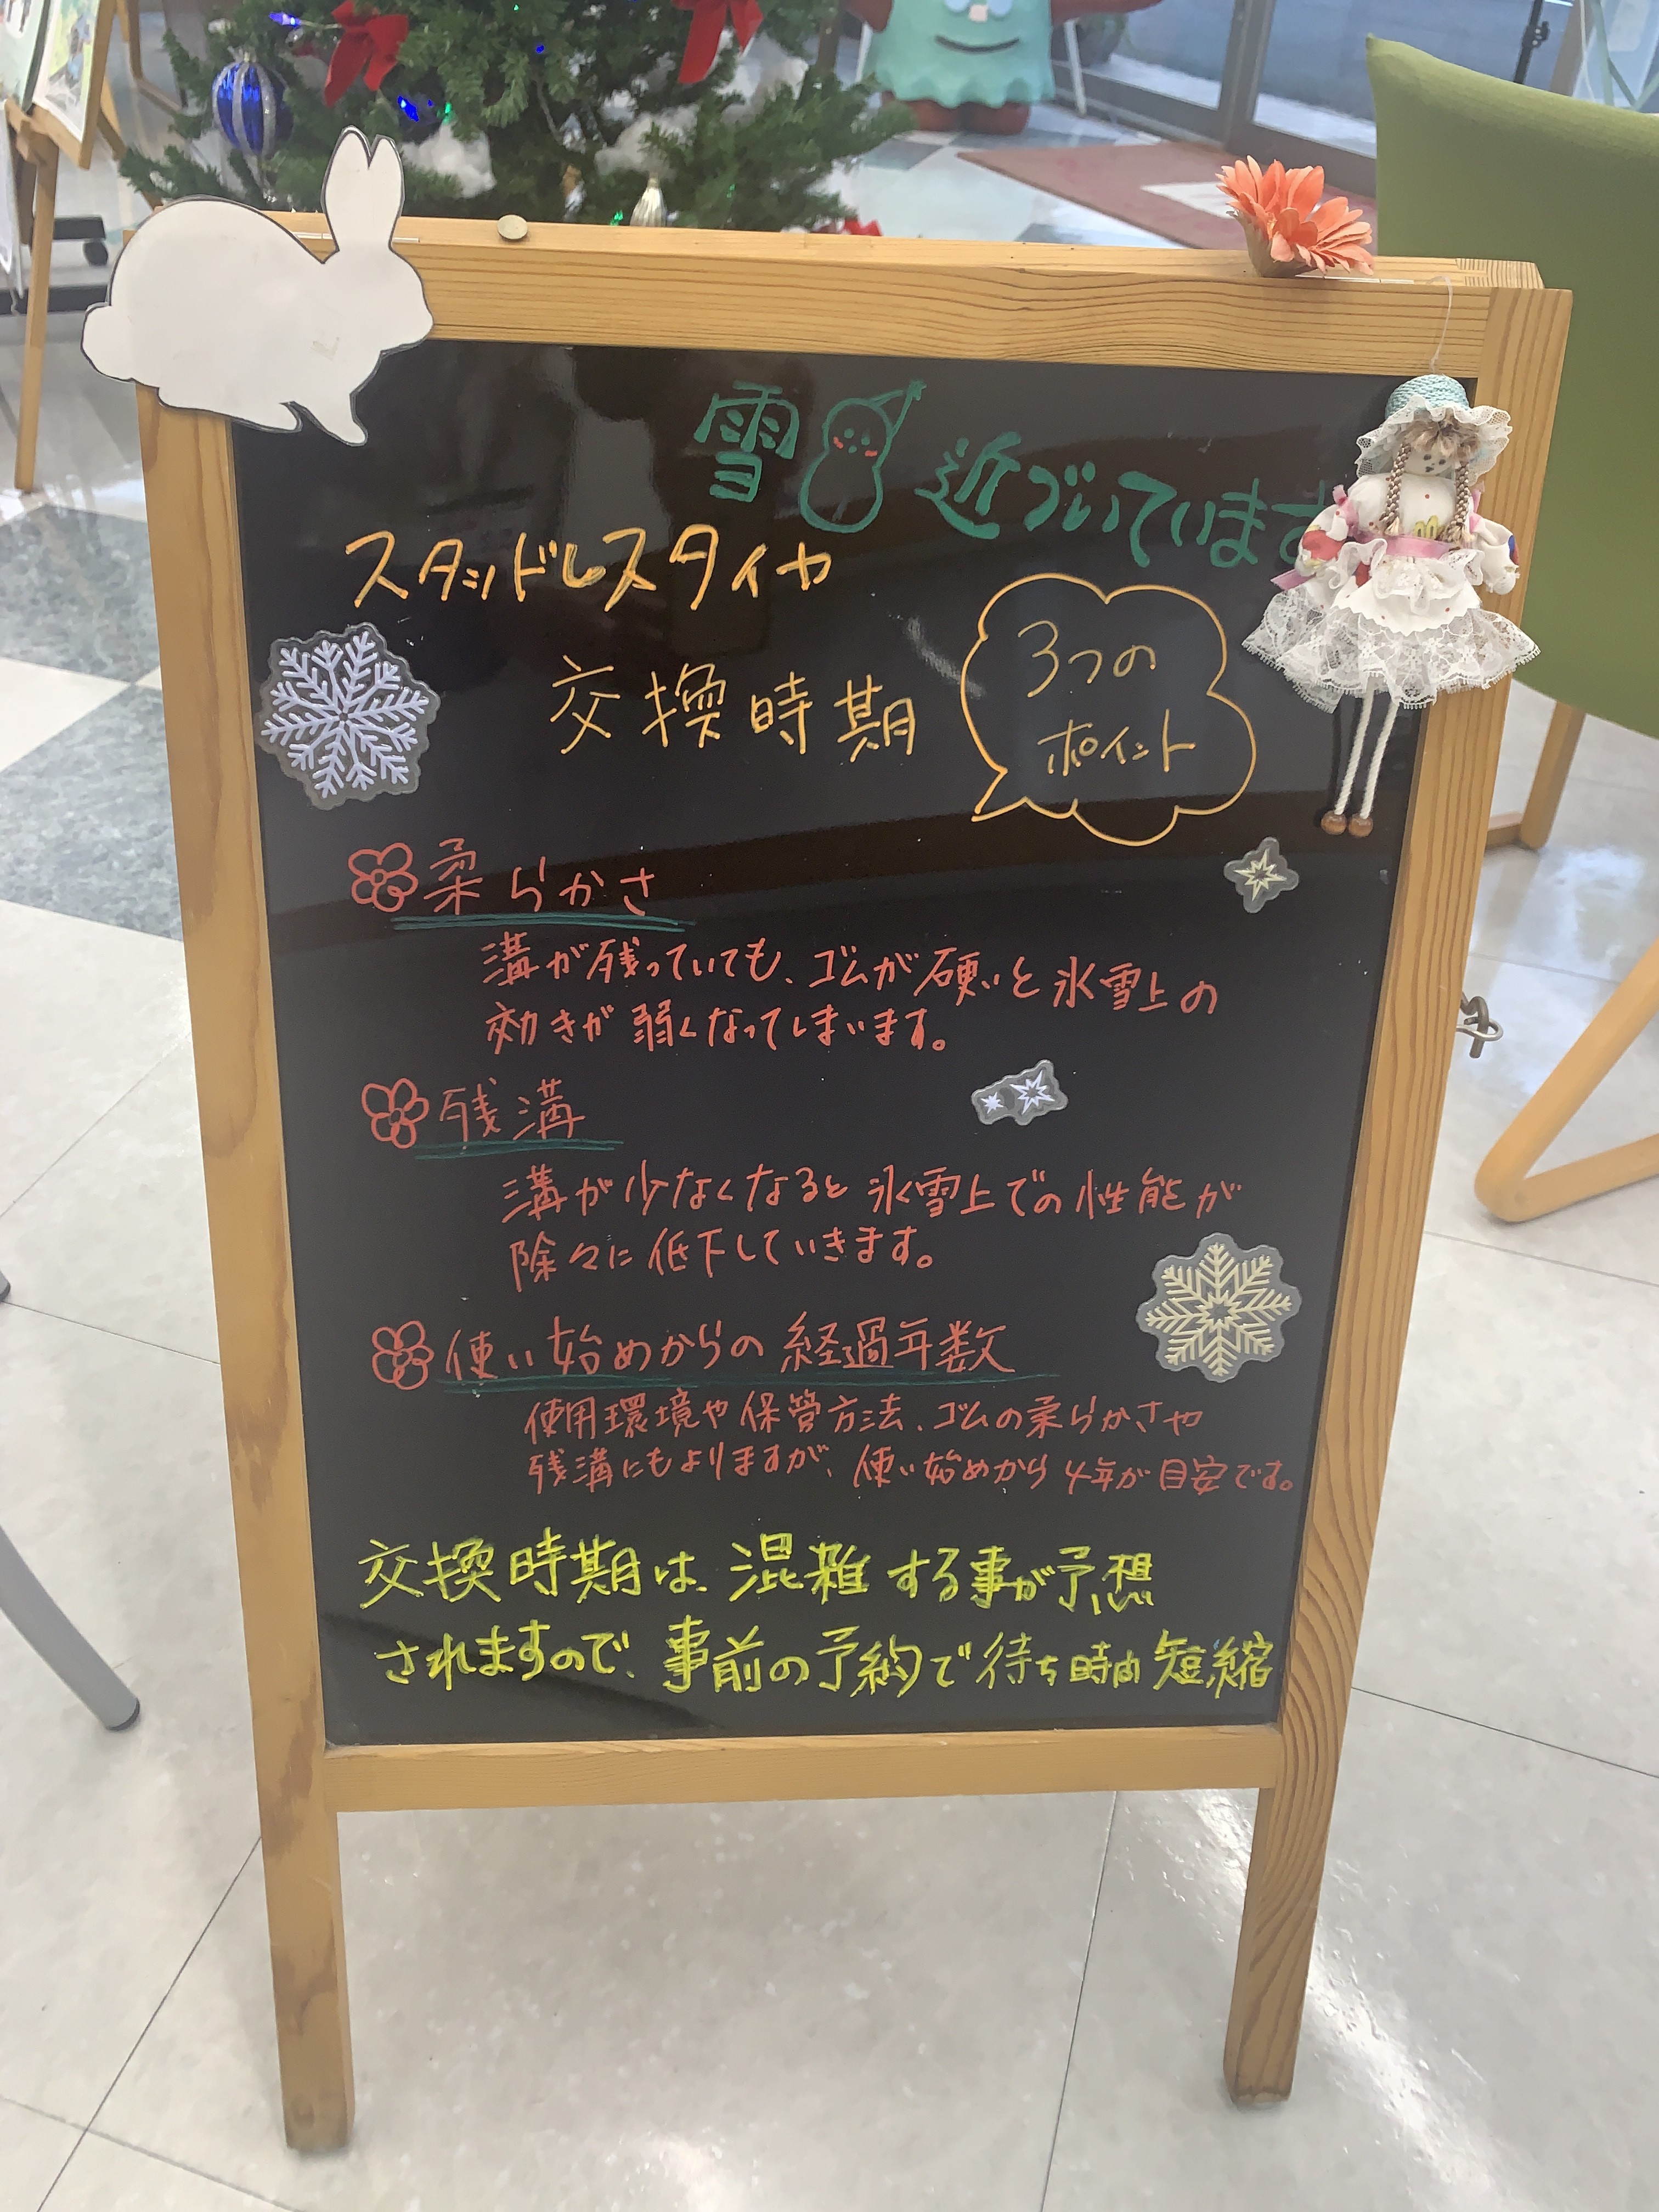 雪 近づいています
スタッドレスタイヤ
交換時期
3つの
ポイント
柔らかさ
溝が残っていても、ゴムが硬いと氷雪上の
効きが弱くなってしまいます。
残溝
溝が少なくなると氷雪上での性能が
除々に低下していきます。
使い始めからの経過年数
使用環境や保管方法、ゴムの柔らかさや
残溝にもよりますが、使い始めから4年が目安です。
交換時期は、混雑する事が予想
されますので、事前の予約で待ち時間短縮